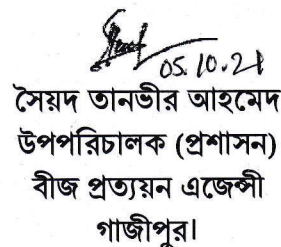 05.10.21
সৈয়দ তানভীর আহমেদ
উপপরিচালক (প্রশাসন)
বীজ প্রত্যয়ন এজেন্সী
গাজীপুর।